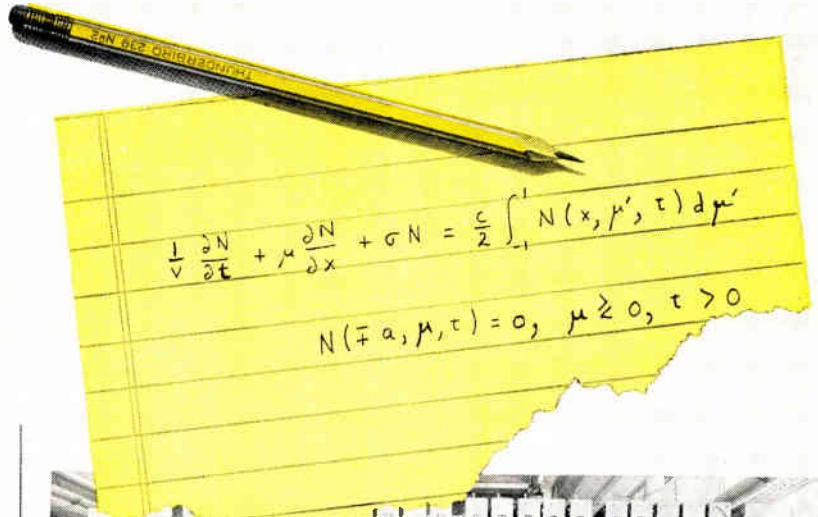 THUNDERBIRD 239 Nº2
1/v ∂N/∂t + μ ∂N/∂x + σN = c/2 ∫₋₁¹ N(x, μ', t) dμ'
N(∓a, μ, t) = 0, μ ≷ 0, t > 0